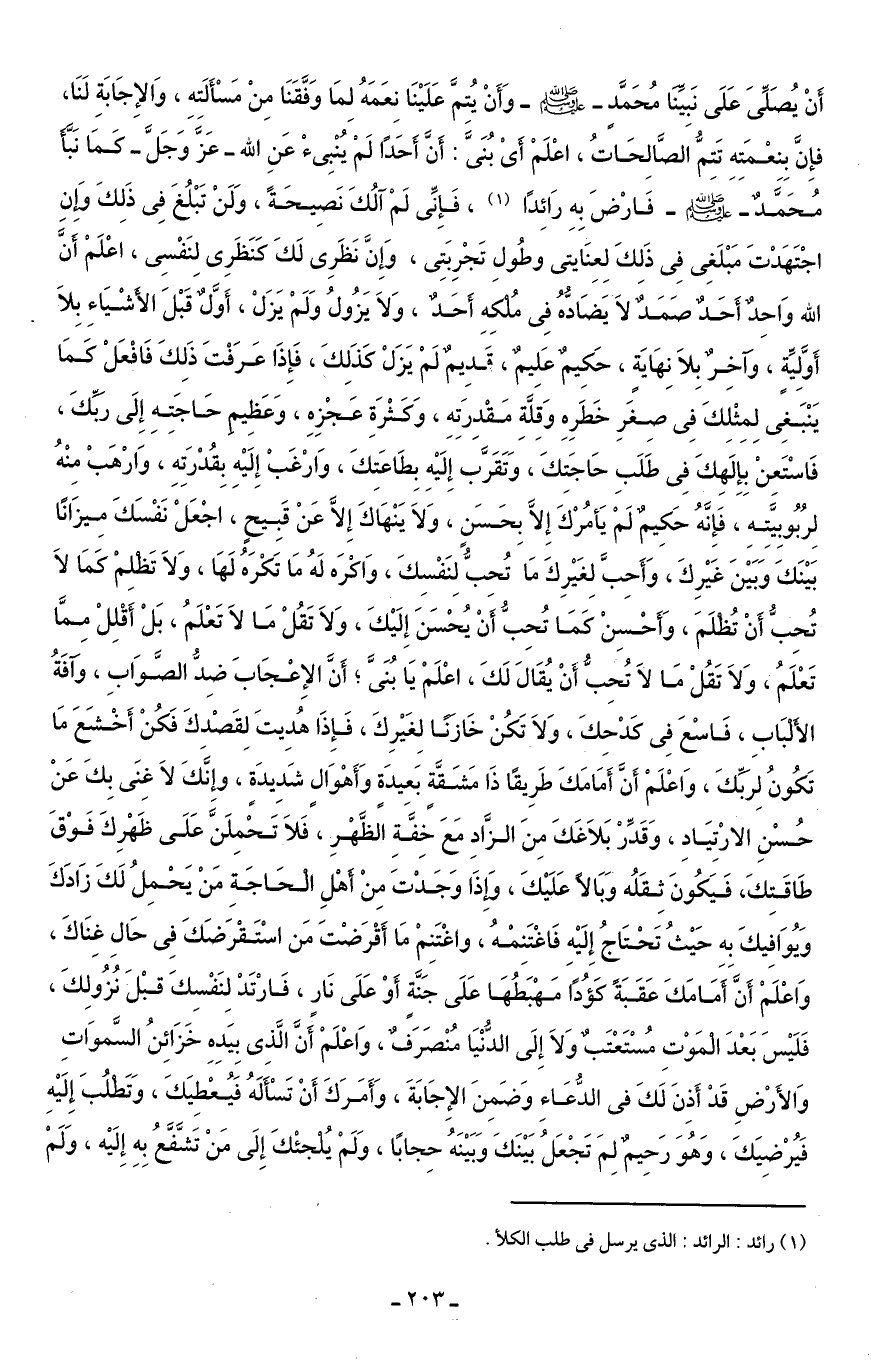 أَنْ يُصَلِّىَ عَلَى نَبِيِّنَا مُحَمَّدٍ ـ ﷺ ـ وَأَنْ يُتِمَّ عَلَيْنَا نِعَمَهُ لِمَا وَفَّقَنَا مِنْ مَسْأَلَتِهِ ، وَالإِجَابَةِ لَنَا،
فَإِنَّ بِنِعْمَتِهِ تَتِمُّ الصَّالِحَاتُ ، اعْلَمْ أَىْ بُنَىَّ : أَنَّ أَحَدًا لَمْ يُنْبِىءْ عَنِ الله ـ عَزَّ وَجَلَّ ـ كَمَا نَبَّأَ
مُحَمَّدٌ ـ ﷺ ـ فَارْضَ بِهِ رَائِدًا (١) ، فَإِنِّى لَمْ آلُكَ نَصِيحَةً ، وَلَنْ تَبْلُغَ فِى ذَلِكَ وَإِنِ
اجْتَهَدْتَ مَبْلَغِى فِى ذَلِكَ لِعِنَايَتِى وَطُولِ تَجْرِبَتِى ، وَإِنَّ نَظَرِى لَكَ كَنَظَرِى لِنَفْسِى ، اعْلَمْ أَنَّ
الله وَاحِدٌ أَحَدٌ صَمَدٌ لاَ يَضَادُّهُ فِى مُلْكِهِ أَحَدٌ ، وَلاَ يَزُولُ وَلَمْ يَزَلْ ، أَوَّلٌ قَبْلَ الأَشْيَاءِ بِلاَ
أَوَّلِيَّةٍ ، وَآخِرٌ بِلاَ نِهَايَةٍ ، حَكِيمٌ عَلِيمٌ ، قَدِيمٌ لَمْ يَزَلْ كَذَلِكَ ، فَإِذَا عَرَفْتَ ذَلِكَ فَافْعَلْ كَمَا
يَنْبَغِى لِمِثْلِكَ فِى صِغَرِ خَطَرِهِ وَقِلَّةِ مَقْدِرَتِهِ ، وَكَثْرَةِ عَجْزِهِ ، وَعَظِيمِ حَاجَتِهِ إِلَى رَبِّكَ ،
فَاسْتَعِنْ بِإِلَهِكَ فِى طَلَبِ حَاجَتِكَ ، وَتَقَرَّبْ إِلَيْهِ بِطَاعَتِكَ ، وَارْغَبْ إِلَيْهِ بِقُدْرَتِهِ ، وَارْهَبْ مِنْهُ
لِرُبُوبِيَّتِهِ ، فَإِنَّهُ حَكِيمٌ لَمْ يَأمُرْكَ إِلاَّ بِحَسَنٍ ، وَلاَ يَنْهَاكَ إِلاَّ عَنْ قَبِيحٍ ، اجْعَلْ نَفْسَكَ مِيزَانًا
بَيْنَكَ وَبَيْنَ غَيْرِكَ ، وَأَحِبَّ لِغَيْرِكَ مَا تُحِبُّ لِنَفْسِكَ ، وَاكْرَه لَهُ مَا تَكْرَهُ لَهَا ، وَلاَ تَظْلِمْ كَمَا لاَ
تُحِبُّ أَنْ تُظْلَمَ ، وَأَحْسِنْ كَمَا تُحِبُّ أَنْ يُحْسَنَ إِلَيْكَ ، وَلاَ تَقُلْ مَا لاَ تَعْلَمُ ، بَلْ أَقْلِلْ مِمَّا
تَعْلَمُ ، وَلاَ تَقُلْ مَا لاَ تُحِبُّ أَنْ يُقَالَ لَكَ ، اعْلَمْ يَا بُنَىَّ ؛ أَنَّ الإِعْجَابَ ضِدُّ الصَّوَابِ ، وَآفَةُ
الأَلْبَابِ ، فَاسْعَ فِى كَدْحِكَ ، وَلاَ تَكُنْ خَازِنًا لِغَيْرِكَ ، فَإِذَا هُدِيتَ لِقَصْدِكَ فَكُنْ أَخْشَعَ مَا
تَكُونُ لِرَبِّكَ ، وَاعْلَمْ أَنَّ أَمَامَكَ طَرِيقًا ذَا مَشَقَّةٍ بَعِيدَةٍ وَأَهْوَالٍ شَدِيدَةٍ ، وَإِنَّكَ لاَ غِنَى بِكَ عَنْ
حُسْنِ الارْتِيَادِ ، وَقَدِّرْ بَلاَغَكَ مِنَ الزَّادِ مَعَ خِفَّةِ الظَّهْرِ ، فَلاَ تَحْمِلَنَّ عَلَى ظَهْرِكَ فَوْقَ
طَاقَتِكَ، فَيَكُونَ ثِقَلُه وَبَالاً عَلَيْكَ ، وَإِذَا وَجَدْتَ مِنْ أَهْلِ الْحَاجَةِ مَنْ يَحْمِلُ لَكَ زَادَكَ
وَيُوَافِيكَ بِهِ حَيْثُ تَحْتَاجُ إِلَيْهِ فَاغْتَنِمْهُ ، وَاغْتَنِمْ مَا أَقْرَضْتَ مَنِ اسْتَقْرَضَكَ فِى حَالِ غِنَاكَ ،
وَاعْلَمْ أَنَّ أَمَامَكَ عَقَبَةً كَؤُدًا مَهْبَطُهَا عَلَى جَنَّةٍ أَوْ عَلَى نَارٍ ، فَارْتَدْ لِنَفْسِكَ قَبْلَ نُزُولِكَ ،
فَلَيْسَ بَعْدَ الْمَوْتِ مُسْتَعْتَبٌ وَلاَ إِلَى الدُّنْيَا مُنْصَرَفٌ ، وَاعْلَمْ أَنَّ الَّذِى بِيَدِهِ خَزَائِنُ السَّموَاتِ
وَالأَرْضِ قَدْ أَذِنَ لَكَ فِى الدُّعَاءِ وَضَمِنَ الإِجَابَةَ ، وَأَمَرَكَ أَنْ تَسْأَلَهُ فَيُعْطِيَكَ ، وَتَطْلُبَ إِلَيْهِ
فَيُرْضِيَكَ ، وَهُوَ رَحِيمٌ لَمْ تَجْعَلُ بَيْنَكَ وَبَيْنَهُ حِجَابًا ، وَلَمْ يُلْجِئْكَ إِلَى مَنْ تَشَفَّعُ بِهِ إِلَيْهِ ، وَلَمْ
(١) رائد : الرائد : الذى يرسل فى طلب الكلأ .
ـ ٢٠٣ ـ